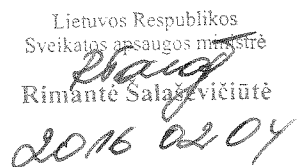 Lietuvos Respublikos
Sveikatos apsaugos ministrė
Rimantė Šalaševičiūtė
2016 02 04